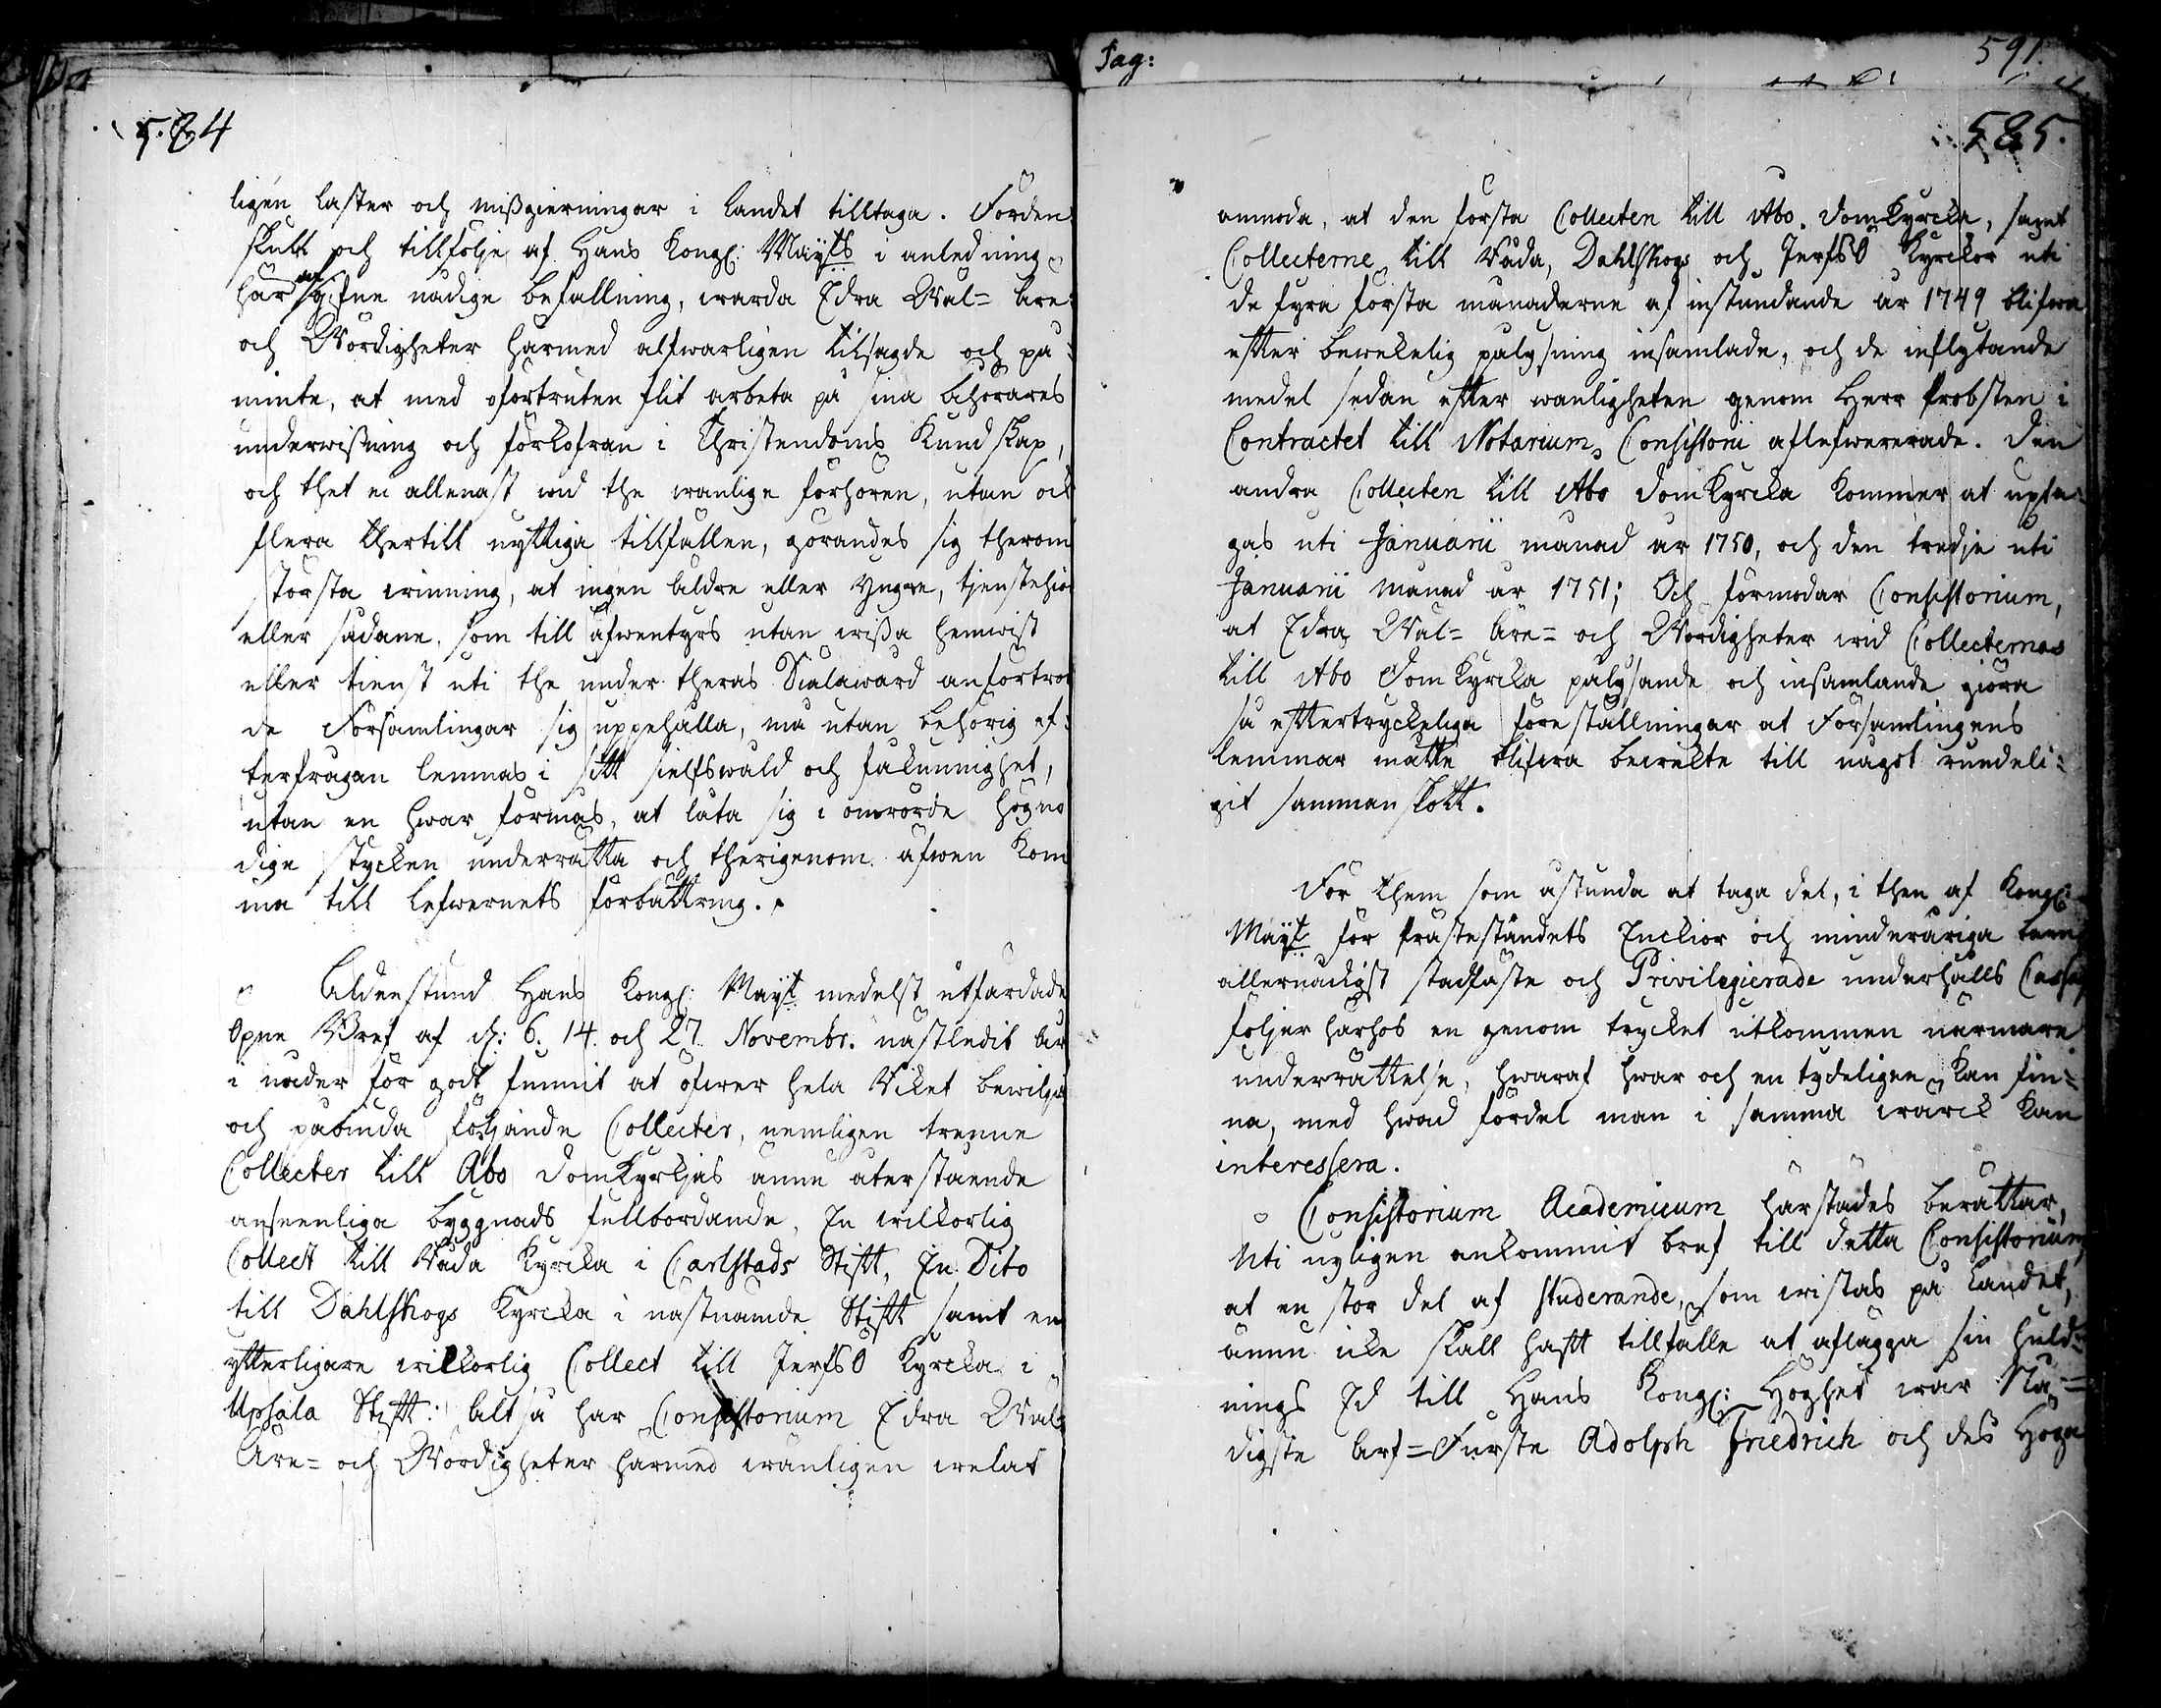 584
ligen laster och mißgierningar i landet tilltaga. Förden
skull och tillfölje af Hans Kongl: Maÿts i anledning
här af gifne nådige befallning, warda Edra Wäl= Äre=
och Wördigheter härmed alfwarligen tilsagde och på=
minte, at med oförtruten flit arbeta på sina åhörares
underwisning och förkofran i Christendoms Kundskap,
och thet ei allenast wid the wanlige förhören, utan ock
flera thertill nyttiga tillfällen, görandes sig therom
största winning, at ingen äldre eller yngre, tjenstehion
eller sådane, som till äfwentyrs utan wißa hemwist
eller tienst uti the under theras Siälawård anförtrod
de Församlingar sig uppehålla, må utan behörig ef=
terfrågan lemnas i sitt sielfswåld och fåkunnighet,
utan en hwar förmås, at låta sig i omrörde högnö
dige stycken underrätta och therigenom äfwen kom
ma till lefwernets förbättring.
Aldenstund Hans Kongl: Maÿt medelst utfärdade
Öpne Bref af d: 6. 14. och 27. Novembr. nästledit år
i nåder för godt funnit at öfwer hela Riket bewilja
och påbinda följande Collecter, nemligen trenne
Collecter till Åbo Domkyrkjas ännu återstående
ansenliga byggnads fullbordande, En wilkorlig
Collect till Råda Kyrcka i Carlstads Stift, En Dito
till Dahlskogs Kyrcka i nästnämde Stift samt en
ytterligare wilkorlig Collect till JerfsÖ Kyrcka i
Upsala Stift: Altså har Consistorium Edra Wäl=
Äre= och Wördigheter härmed wänligen welat
Pag: 591.
585.
anmoda, at den första Collecten till Åbo Domkyrcka, samt
Collecterne till Råda, Dahlskogs och JerfsÖ Kyrckor uti
de fyra första månaderne af instundande år 1749 blifwa
efter bewekelig pålysning insamlade, och de inflytande
medel sedan efter wanligheten genom Herr Probsten i
Contractet till Notarium Consistorii aflefwererade. Den
andra Collecten till Åbo DomKyrcka kommer at upta=
gas uti Januarii månad år 1750, och den tredje uti
Januarii Månad år 1751; Och förmodar Consistorium,
at Edra Wäl= Äre= och Wördigheter wid Collecternas
till Åbo DomKyrcka pålysande och insamlande giöra
så eftertryckeliga föreställningar at Församlingens
lemmar måtte blifwa bewekte till något rundeli=
git sammanskott.
För them som åstunda at taga del, i then af Kongl:
Maÿt för Prästeståndets Enckior och minderåriga barn
allernådigst stadfäste och Privilegierade underhålls Cassa,
följer härhos en genom trycket utkommen närmare
underrättelse, hwaraf hwar och en tydeligen kan fin=
na, med hwad fördel man i samma wärck kan
interessera.
Consistorium Academicum härstädes berättar,
Uti nyligen ankommit bref till detta Consistorium,
at en stor del af studerande, som wistas på Landet,
ännu icke skall haft tillfälle at aflägga sin huld=
nings Ed till Hans Kongl: Höghet wår Nå=
digste Arf=Furste Adolph Friedrich och des Höga